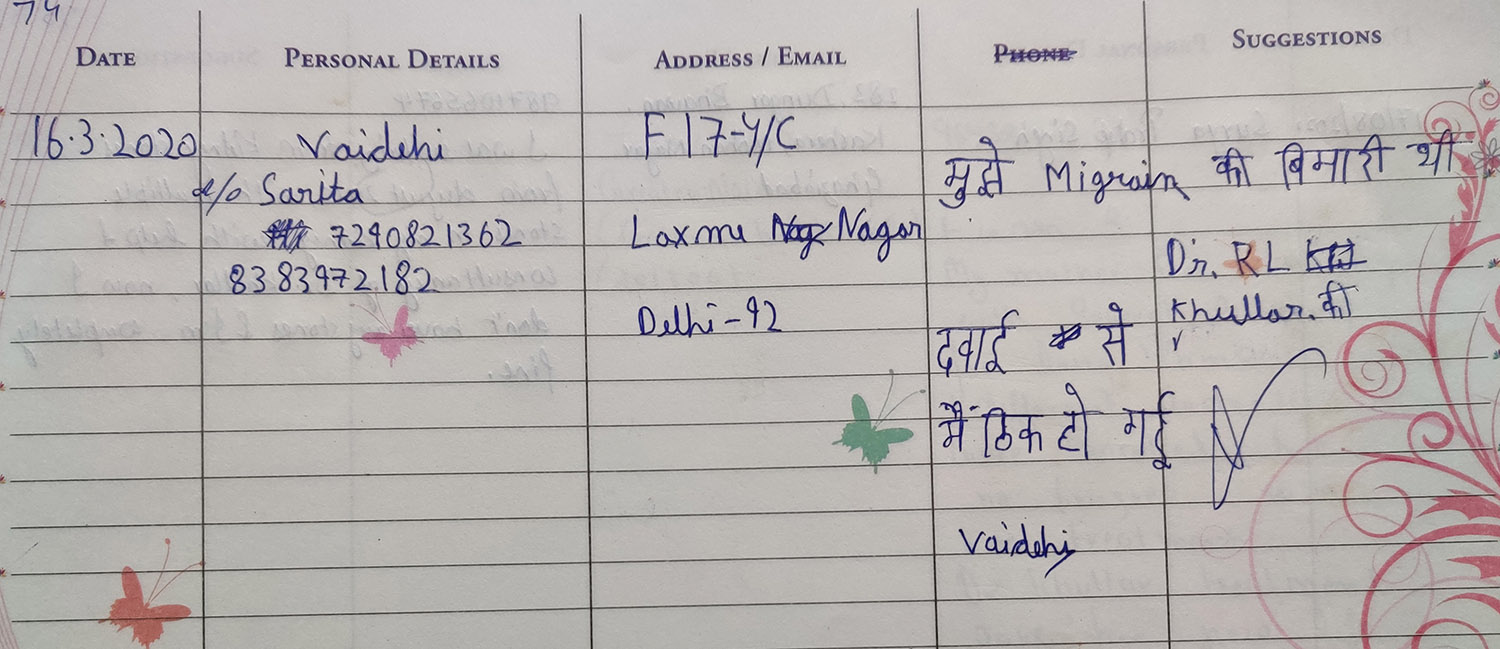 74
DATE PERSONAL DETAILS ADDRESS / EMAIL PHONE SUGGESTIONS
16.3.2020 Vaidehi F 17-Y/C
d/o Sarita
7290821362
8383972182
Laxmi Nagar
Delhi-92
मुझे Migrain की बिमारी थी
Dr. R L
Khullar की
दवाई से
मैं ठिक हो गई
Vaidehi